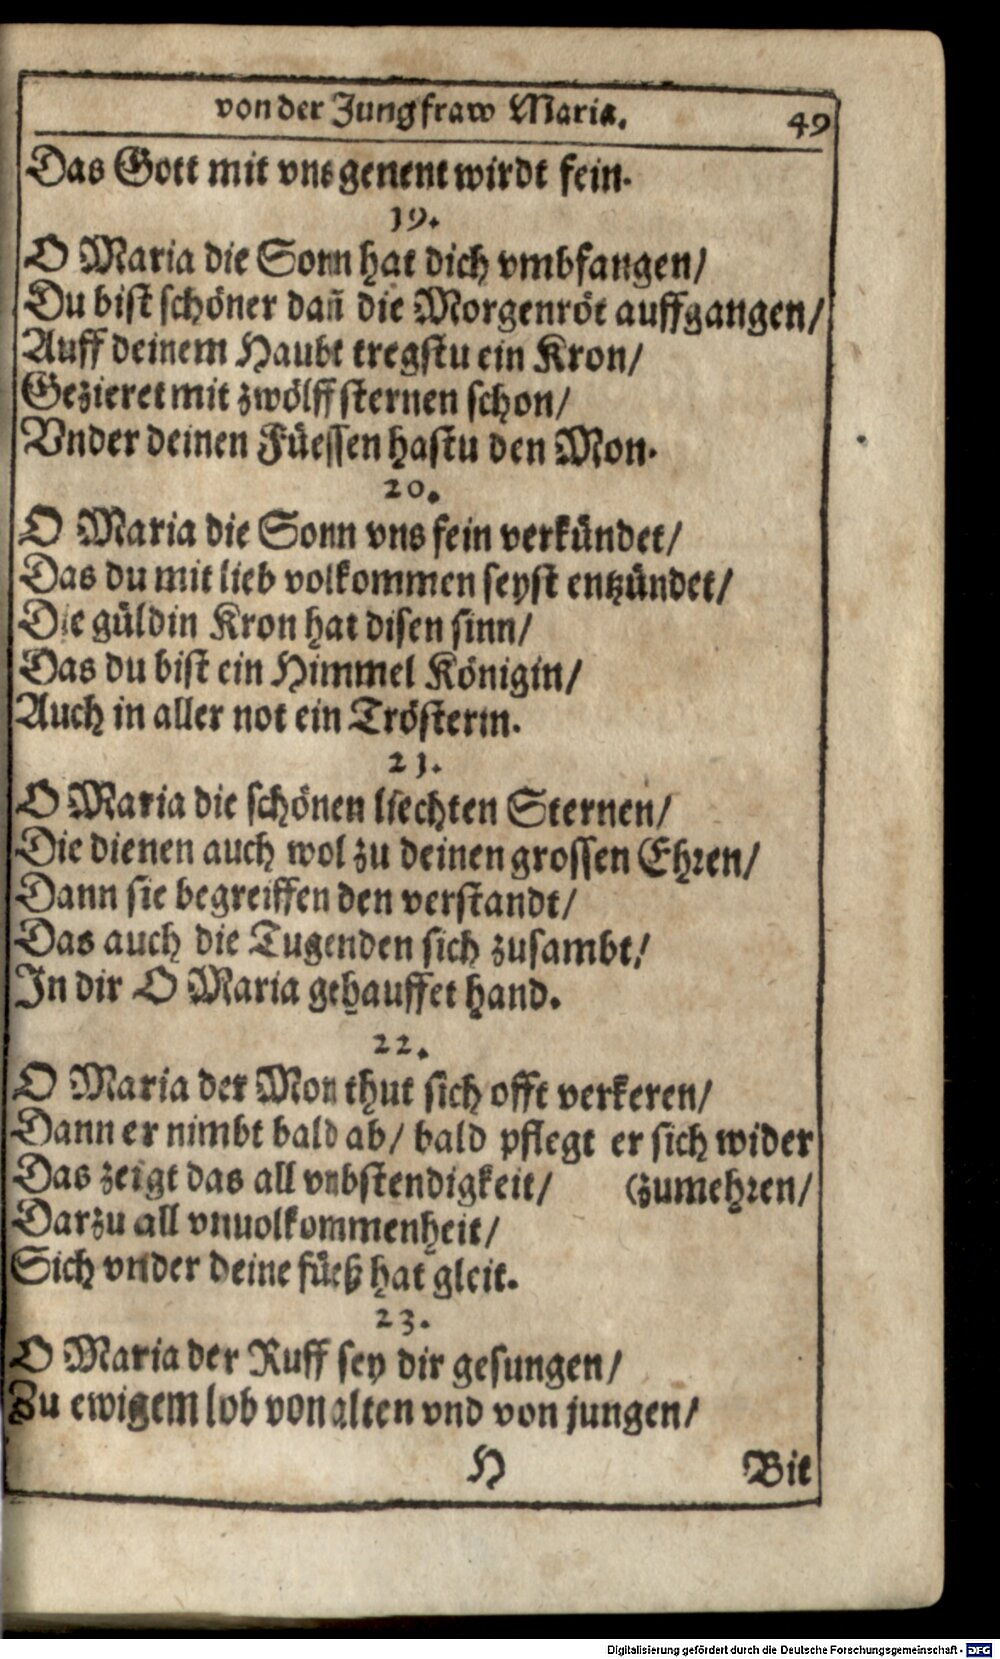 von der Jungfraw Maria. 49
Das Gott mit vns genent wirdt fein.
19.
O Maria die Sonn hat dich vmbfangen/
Du bist schöner dañ die Morgenröt auffgangen/
Auff deinem Haubt tregstu ein Kron/
Gezieret mit zwölff sternen schon/
Vnder deinen Füessen hastu den Mon.
20.
O Maria die Sonn vns fein verkündet/
Das du mit lieb volkommen seyst entzündet/
Die güldin Kron hat disen sinn/
Das du bist ein Himmel Königin/
Auch in aller not ein Trösterin.
21.
O Maria die schönen liechten Sternen/
Die dienen auch wol zu deinen grossen Ehren/
Dann sie begreiffen den verstandt/
Das auch die Tugenden sich zusambt/
In dir O Maria gehauffet hand.
22.
O Maria der Mon thut sich offt verkeren/
Dann er nimbt bald ab/ bald pflegt er sich wider
Das zeigt das all vnbstendigkeit/ (zumehren/
Darzu all vnuolkommenheit/
Sich vnder deine füeß hat gleit.
23.
O Maria der Ruff sey dir gesungen/
Zu ewigem lob von alten vnd von jungen/
H Bit
Digitalisierung gefördert durch die Deutsche Forschungsgemeinschaft - DFG